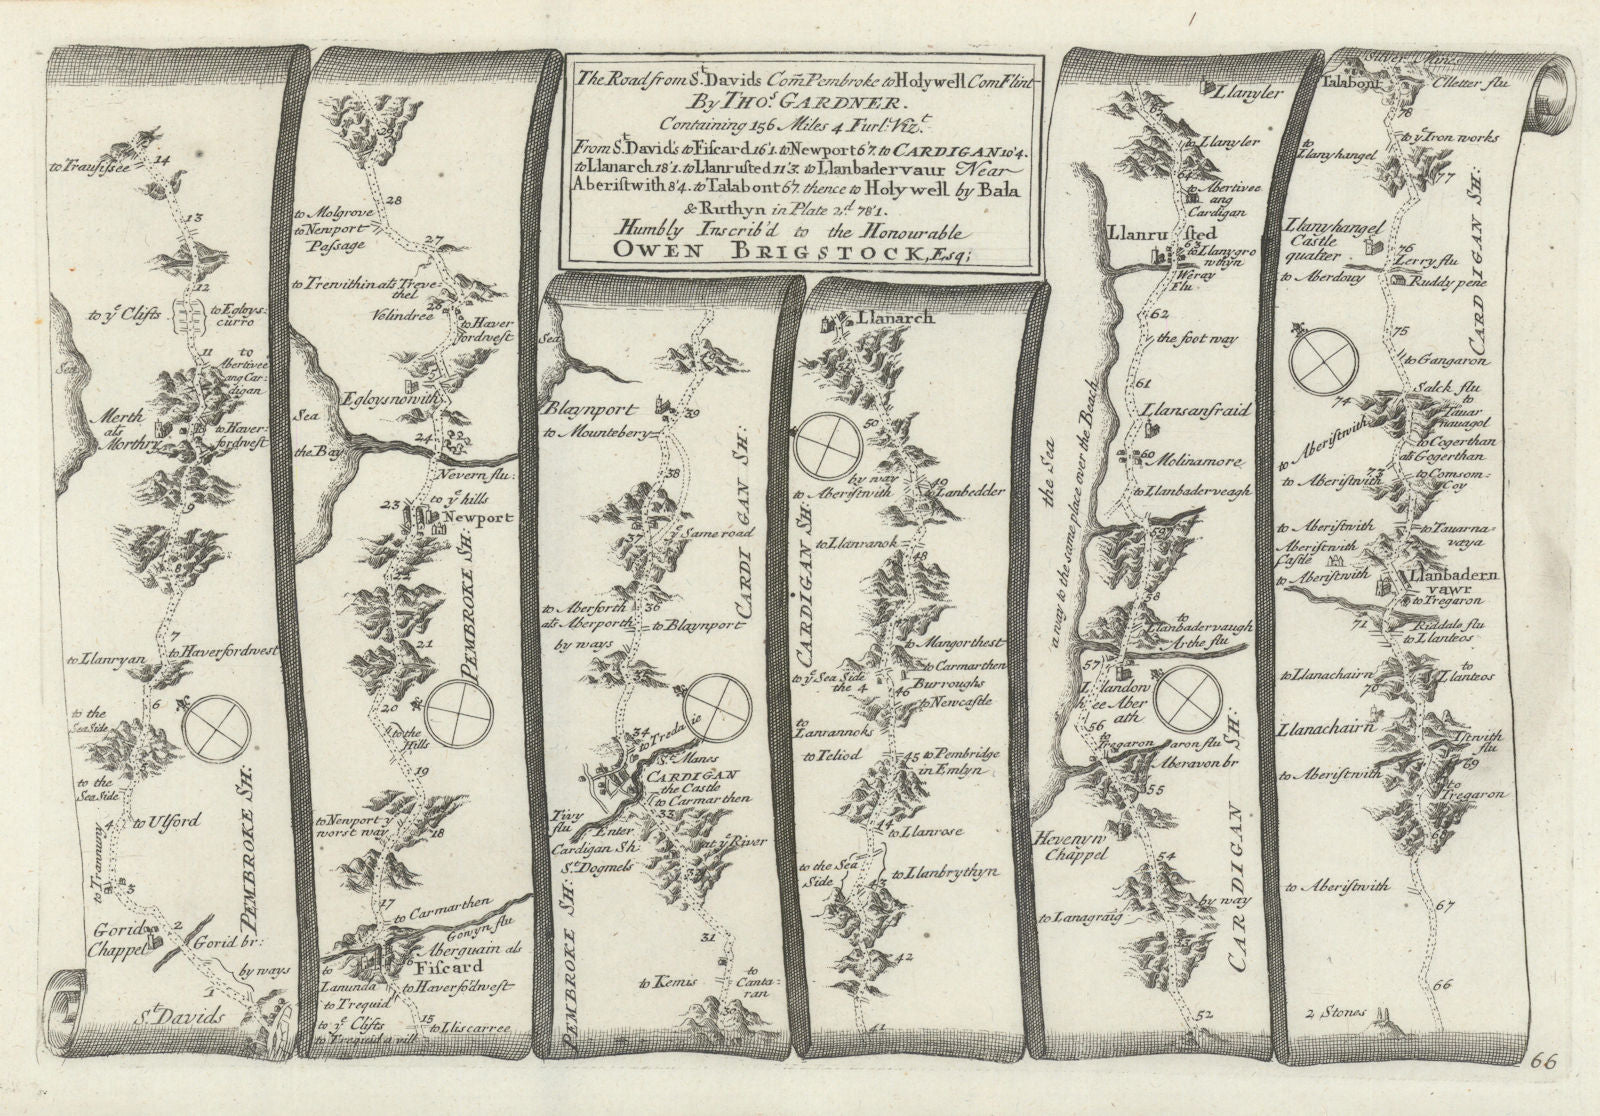 The Road from St. Davids Com Pembroke to Holywell Com Flint
By THOs. GARDNER.
Containing 156 Miles 4 Furl: Vizt.
From St. David's to Fiscard 16'1. to Newport 6'7. to CARDIGAN 10'4.
to Llanarch 18'1. to Llanrusted 11'3. to Llanbadervaur Near
Aberistwith 8'4. to Talabont 6'7. thence to Holywell by Bala
& Ruthyn in Plate 2d. 78'1.
Humbly Inscrib'd to the Honourable
OWEN BRIGSTOCKE, Esq;
14
to Traufssee
13
12
to ye Clifts
to Egloys=
curro
11
to
Abertivee
ang Car=
digan
Sea
Merth
als
Morthry
10
to Haver=
fordwest
9
8
7
to Llanryan
to Haverfordwest
6
to the
Sea Side
to the
Sea Side
4
to Ulford
3
PEMBROKE SH:
2
Gorid
Chappel
Gorid br:
by ways
1
St. Davids
29
28
to Molgrove
to Newport
Passage
27
to Trewithin als Treve=
thel
26
Velindree
to Haver
fordwest
25
Egloysnowith
Sea
24
the Bay
Nevern flu:
23
to ye hills
Newport
22
PEMBROKE SH:
21
20
to the
Hills
19
to Newport ye
worst way
18
17
to Carmarthen
Gowyn flu
Aberguain als
Fiscard
to
Lanunda
to Haverfordwest
to Trequid
to ye Clifts
15
to Lliscarree
to Trequid a vill
Sea
40
Blaynport
39
to Mountebery
38
CARDIGAN SH:
37
ye Same road
to Aberforth
als Aberporth
36
to Blaynport
by ways
34
to Tredavie
St. Manes
CARDIGAN
the Castle
to Carmarthen
Tivy
flu
33
Enter
Cardigan Sh:
at ye River
St. Dogmels
32
PEMBROKE SH:
31
to Kemis
to
Canta=
ran
30
Llanarch
50
by way
to Aberistwith
49
Lanbedder
to Llanranok
48
CARDIGAN SH:
to Mangorthest
to Carmarthen
to ye Sea Side
the 4
Burroughs
46
to Newcastle
to
Lanrannoks
to Teliod
45
to Pembridge
in Emlyn
44
to Llanrose
to the Sea
Side
to Llanbrythyn
43
42
41
Llanyler
65
to Llanyler
64
to Abertivee
ang
Cardigan
Llanrusted
63
to Llanygro
nthyn
Weray
Flu
62
the foot way
61
Llansanfraid
60
Molinamore
to Llanbaderveagh
the Sea
a way to the same place over the Beach
59
58
to
Llanbadervaugh
Arthe flu
57
Llandow
ee Aber
ath
56
to
Tregaron
aron flu
Aberavon br
55
Hevenyn
Chappel
54
by way
to Lanagraig
53
CARDIGAN SH:
52
Silver Mines
Talabont
Clletter flu
78
to ye Iron works
to
Llanyhangel
77
CARDIGAN SH:
Llanyhangel
Castle
qualter
76
Lerry flu
to Aberdowy
Ruddy pene
75
to Gangaron
Salck flu
74
to
Tauar
nauagol
to Aberistwith
to Cogerthan
als Gogerthan
73
to Aberistwith
to Comsom=
Coy
to Aberistwith
to Tauarna=
vaya
Aberistwith
Castle
to Aberistwith
Llanbadern
vawr
to Tregaron
Riddale flu
71
to Llanteos
to Llanachairn
to
Llanteos
70
Llanachairn
Istwith
flu
69
to Aberistwith
to
Tregaron
68
to Aberistwith
67
66
2 Stones
66